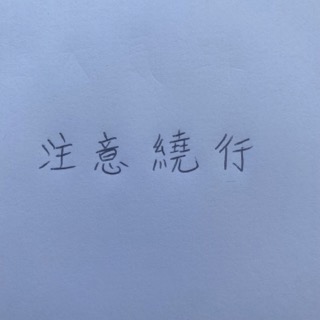 注意繞行